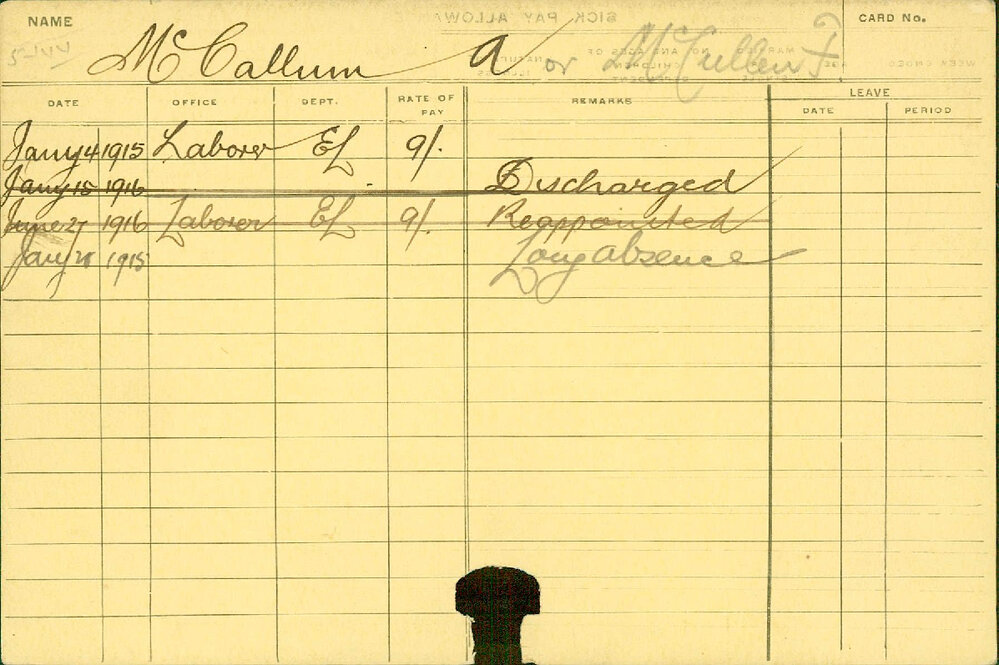 NAME
CARD No.
McCallum A or McCullen F ?
DATE OFFICE DEPT. RATE OF PAY REMARKS LEAVE
DATE PERIOD
Jany 4 1915 Laborer EL 9/.
Jany 15 1916 Discharged
June 27 1916 Laborer EL 9/. Reappointed
Jany 1915 Long absence